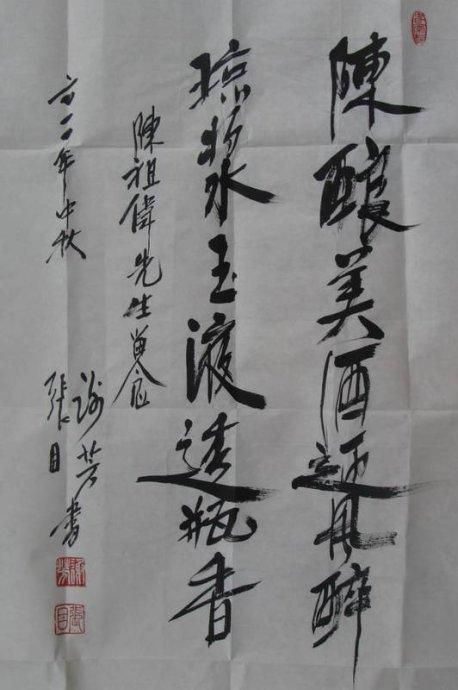 陳釀美酒迎风醉
琼浆玉液透瓶香
陳祖偉先生
二〇一一年中秋
谢芳書
张目
谢芳
张目